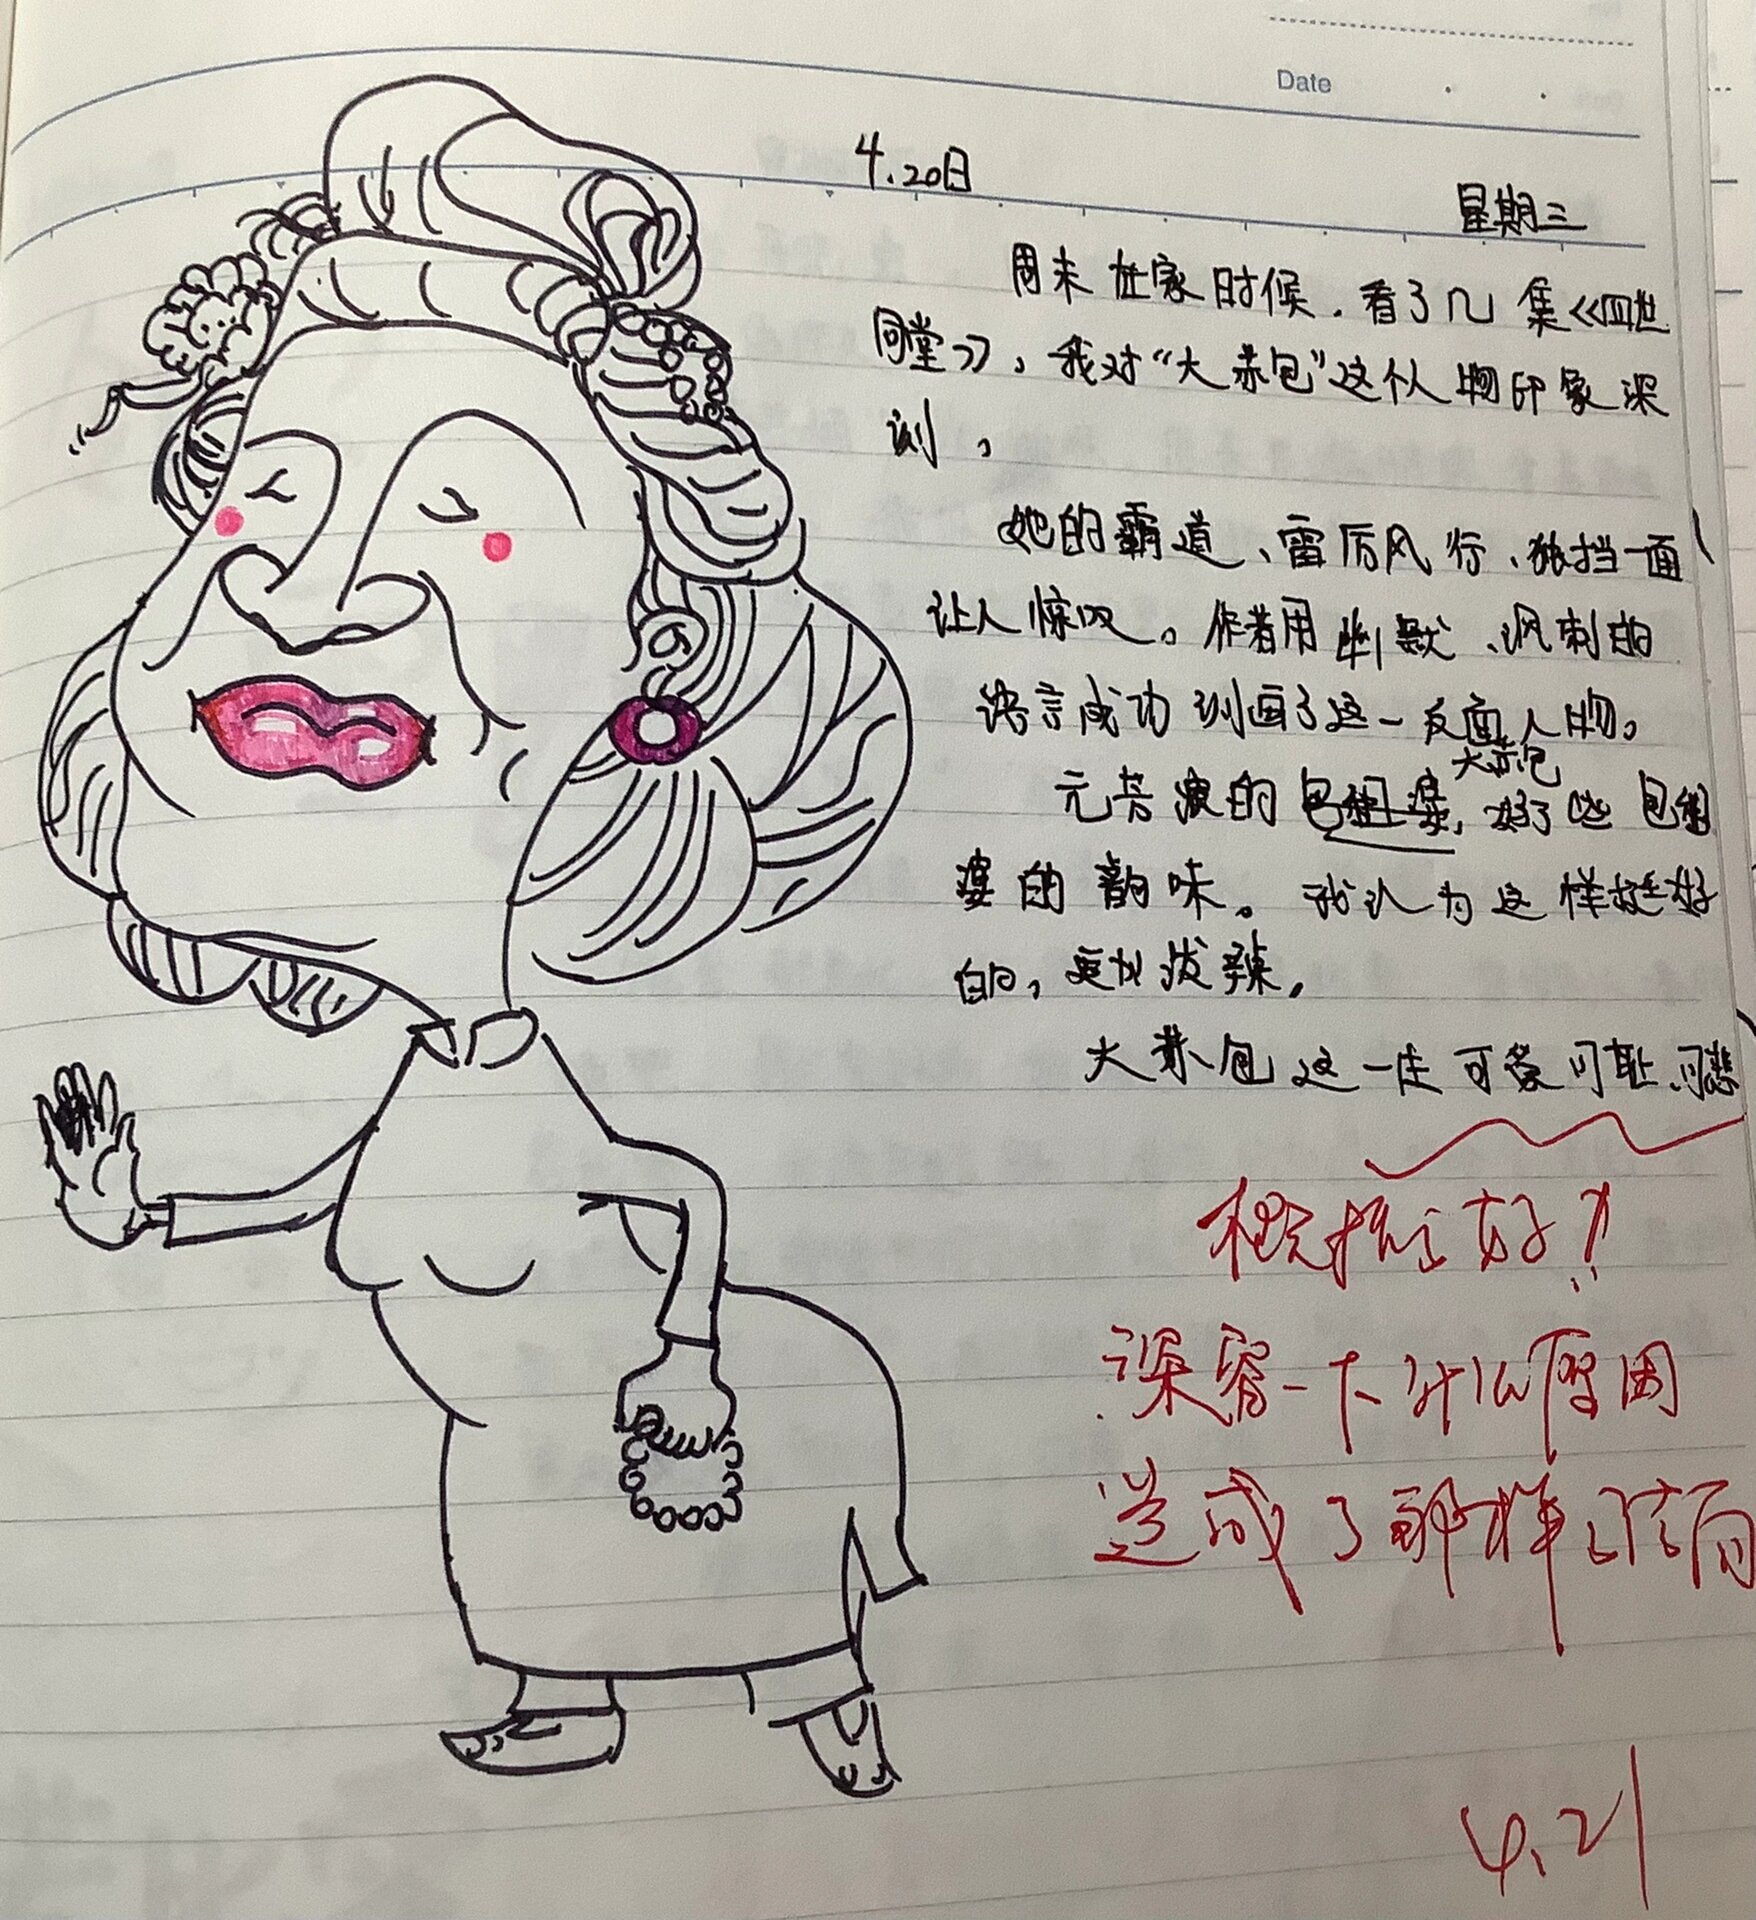 Date
4.20日
星期三
周末在家时候，看了几集《四世
同堂》，我对“大赤包”这个人物印象深
刻，
她的霸道、雷厉风行、独挡一面
让人惊叹。作者用幽默、讽刺的
语言成功刻画了这一反面人物。
大赤包
元芳演的包租婆，好了些包租
婆的韵味。我认为这样挺好
的，更加泼辣，
大赤包这一生可爱可耻可悲
概括之好！
深究一下什么原因
造成了那样之结局
4.21